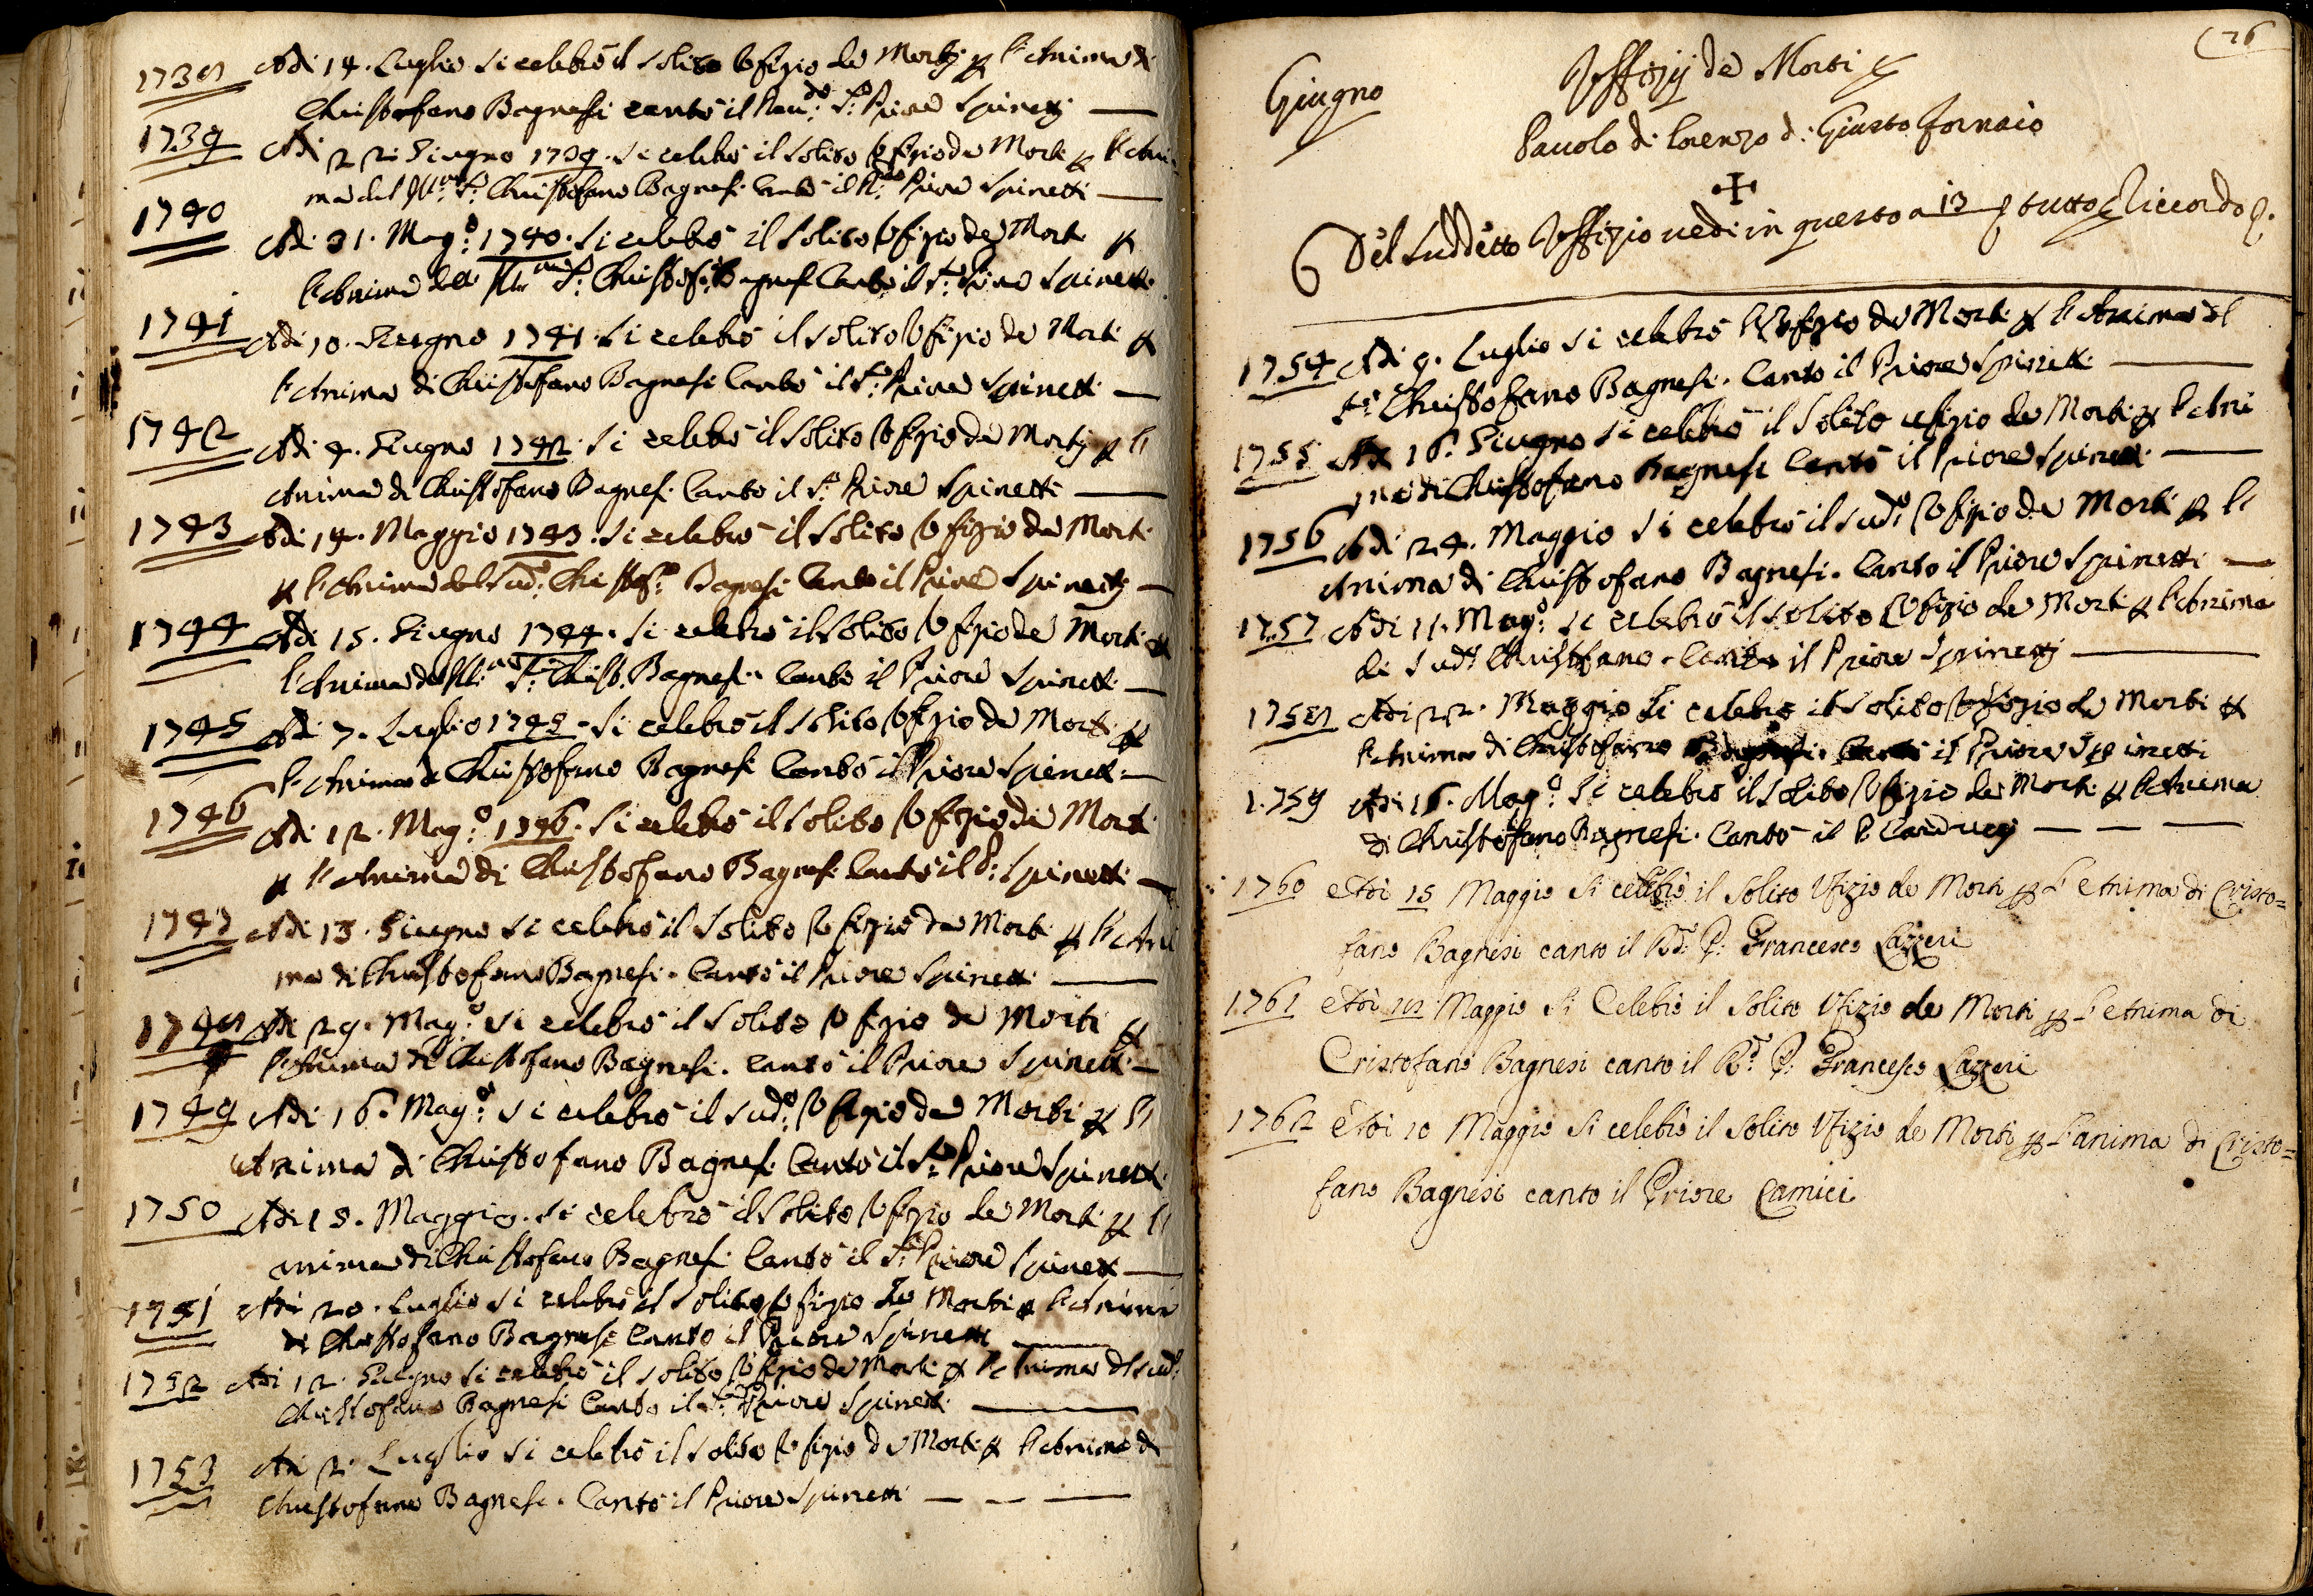 1738 Adi 14. Luglio si celebrò il solito Ufizio de Morti p l'Anima di
Christofano Bagnesi cantò il Reu:do S:r Priore Spinetti
1739 Adi 22 Giugno 1739. si celebrò il solito Ufizio de Morti p l'Ani
ma del S:r Christofano Bagnesi. Cantò il R:do Priore Spinetti
1740 Adi 31. Mag:o 1740. si celebrò il solito Ufizio de Morti p
l'Anima del S:r Christof:o Bagnesi Cantò il S:r Priore Spinetti
1741 Adi 10. Giugno 1741. si celebrò il solito Ufizio de Morti p
l'Anima di Christofano Bagnesi Cantò il S:r Priore Spinetti
1742 Adi 4. Giugno 1742. si celebrò il solito Ufizio de Morti p l'
Anima di Christofano Bagnesi. Cantò il S:r Priore Spinetti
1743 Adi 14. Maggio 1743. si celebrò il solito Ufizio de Morti
p l'Anima del Sud:o Christof:o Bagnesi Cantò il Priore Spinetti
1744 Adi 15. Giugno 1744. si celebrò il solito Ufizio de Morti p
l'Anima del S:r Christ. Bagnesi. Cantò il Priore Spinetti
1745 Adi 7. Luglio 1745. si celebrò il solito Ufizio de Morti p
l'Anima di Christofano Bagnesi Cantò il Priore Spinetti
1746 Adi 12. Mag:o 1746. si celebrò il solito Ufizio de Morti
p l'Anima di Christofano Bagnesi Cantò il P: Spinetti
1747 Adi 13. Giugno si celebrò il solito Ufizio de Morti p l'Ani
ma di Christofano Bagnesi. Cantò il Priore Spinetti
1748 Adi 29. Mag:o si celebrò il solito Ufizio de Morti p
l'Anima di Christofano Bagnesi. Cantò il Priore Spinetti
1749 Adi 16. Mag:o si celebrò il sud:o Ufizio de Morti p l'
Anima di Christofano Bagnesi. Cantò il S:r Priore Spinetti
1750 Adi 15. Maggio. si celebrò il solito Ufizio de Morti p l'
anima di Christofano Bagnesi Cantò il S:r Priore Spinetti
1751 Adi 20. Luglio si celebrò il solito Ufizio de Morti p l'Anima
di Christofano Bagnesi Cantò il Priore Spinetti
1752 Adi 12. Giugno si celebrò il solito Ufizio de Morti p l'Anima del sud:o
Christofano Bagnesi Cantò il S:r Priore Spinetti
1753 Adi 2. Luglio si celebrò il solito Ufizio de Morti p l'Anima di
Christofano Bagnesi. Cantò il Priore Spinetti
26
Giugno
Uffizij de Morti p
Pauolo di Lorenzo di Giusto Fornaio
Del Suddetto Uffizio uedi in questo a 13 p tutto il riccordo
1754 Adi 9. Luglio si celebrò l'Ufizio de Morti p l'Anima del
S:r Christofano Bagnesi. Cantò il Priore Spinetti
1755 Adi 16. Giugno si celebrò il solito ufizio de Morti p l'Ani
ma di Christofano Bagnesi Cantò il Priore Spinetti
1756 Adi 24. Maggio si celebrò il sud:o Ufizio de Morti p l'
Anima di Christofano Bagnesi. Cantò il Priore Spinetti
1757 Adi 11. Mag:o si celebrò il solito Ufizio de Morti p l'Anima
di sud:o Christofano. Cantò il Priore Spinetti
1758 Adi 22. Maggio si celebrò il solito Ufizio de Morti p
l'Anima di Christofano Bagnesi. Cantò il Priore Spinetti
1759 Adi 16. Mag:o si celebrò il solito Ufizio de Morti p l'Anima
di Christofano Bagnesi. Cantò il P. Carducci
1760 Adi 15 Maggio si celebrò il solito Ufizio de Morti p l'Anima di Cristo=
fano Bagnesi cantò il R:do P: Francesco Lazzeri
1761 Adi 18 Maggio si Celebrò il solito Ufizio de Morti p l'Anima di
Cristofano Bagnesi cantò il R:do P: Francesco Lazzeri
1762 Adi 10 Maggio si celebrò il solito Ufizio de Morti p l'anima di Cristo=
fano Bagnesi cantò il Priore Camici